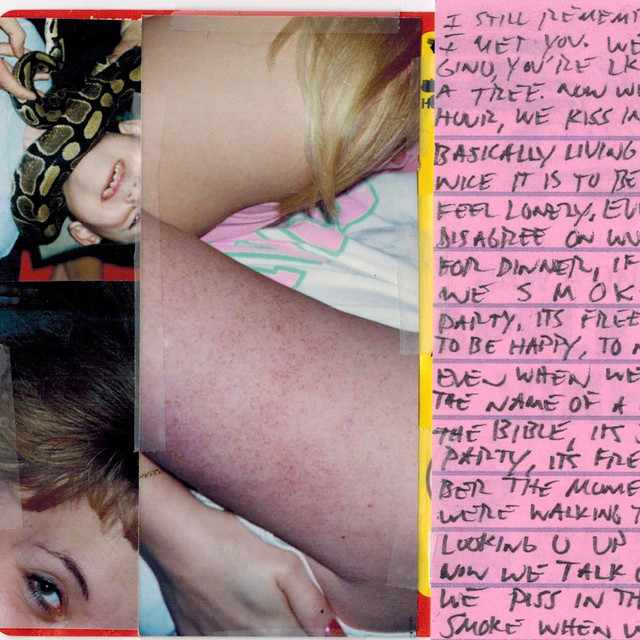 I STILL REMEM
I MET YOU. WE
GINO, YOU'RE LK
A TREE. NOW WE
HOUR, WE KISS IN
BASICALLY LIVING
NICE IT IS TO BE
FEEL LONELY, EV
DISAGREE ON WH
FOR DINNER, IF
WE SMOK
PARTY, ITS FREE
TO BE HAPPY, TO
EVEN WHEN WE
THE NAME OF A
THE BIBLE, ITS
PARTY, ITS FRE
BER THE MOME
WERE WALKING T
LOOKING U UP
NOW WE TALK
WE PISS IN TH
SMOKE WHEN W